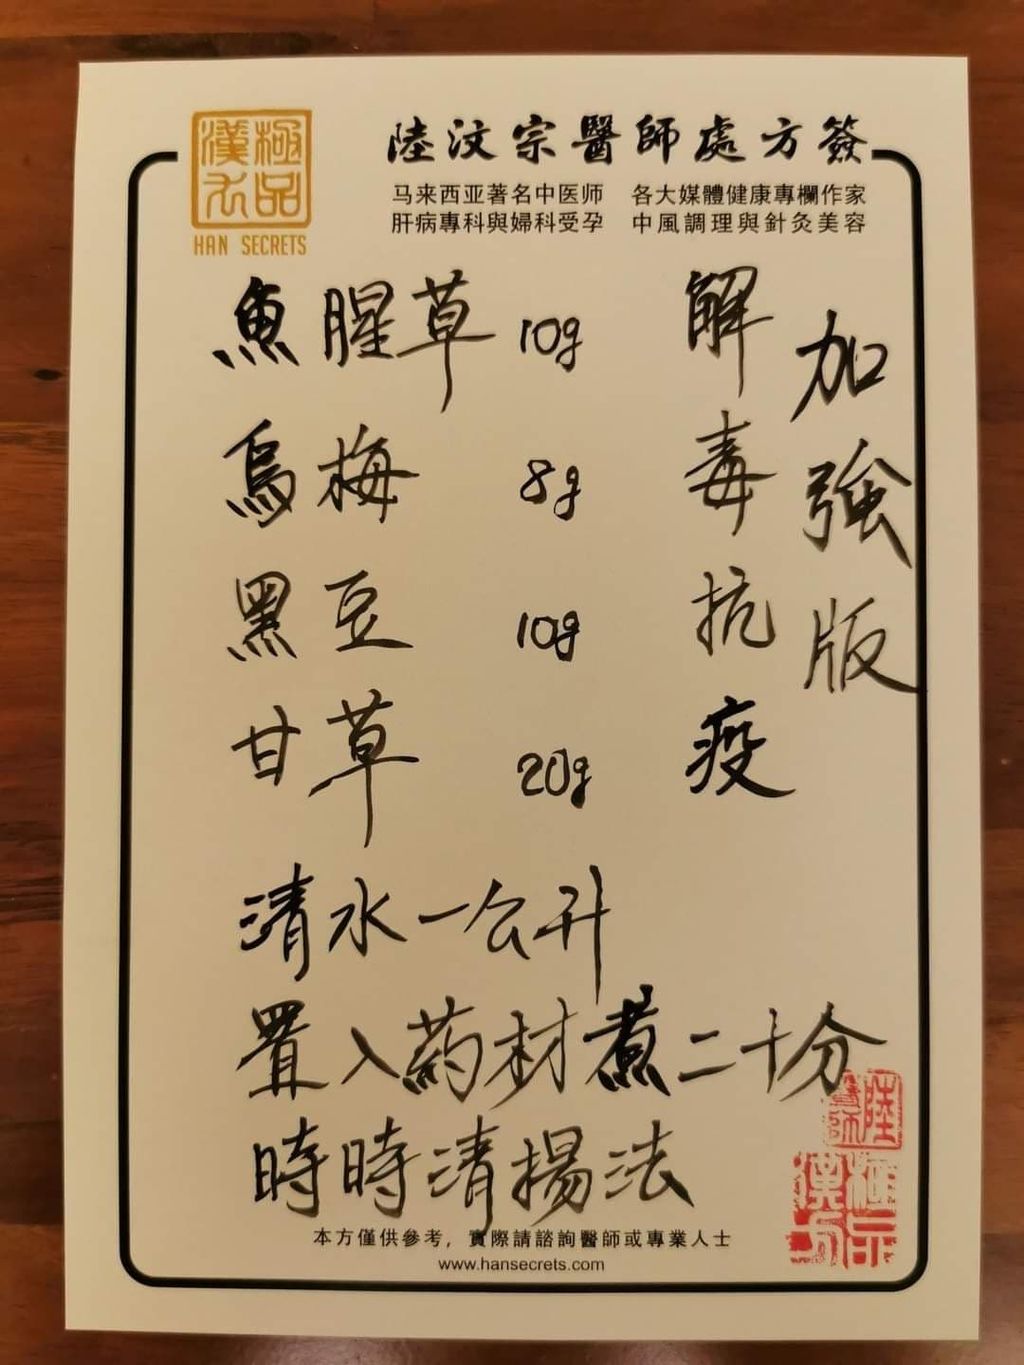 極品
漢方
HAN SECRETS
陸汶宗醫師處方簽
马来西亚著名中医师 各大媒體健康專欄作家
肝病專科與婦科受孕 中風調理與針灸美容
加強版
解毒抗疫
魚腥草 10g
烏梅 8g
黑豆 10g
甘草 20g
清水一公升
置入药材煮二十分
時時清揚法
陸醫師
極品漢方
本方僅供參考，實際請諮詢醫師或專業人士
www.hansecrets.com